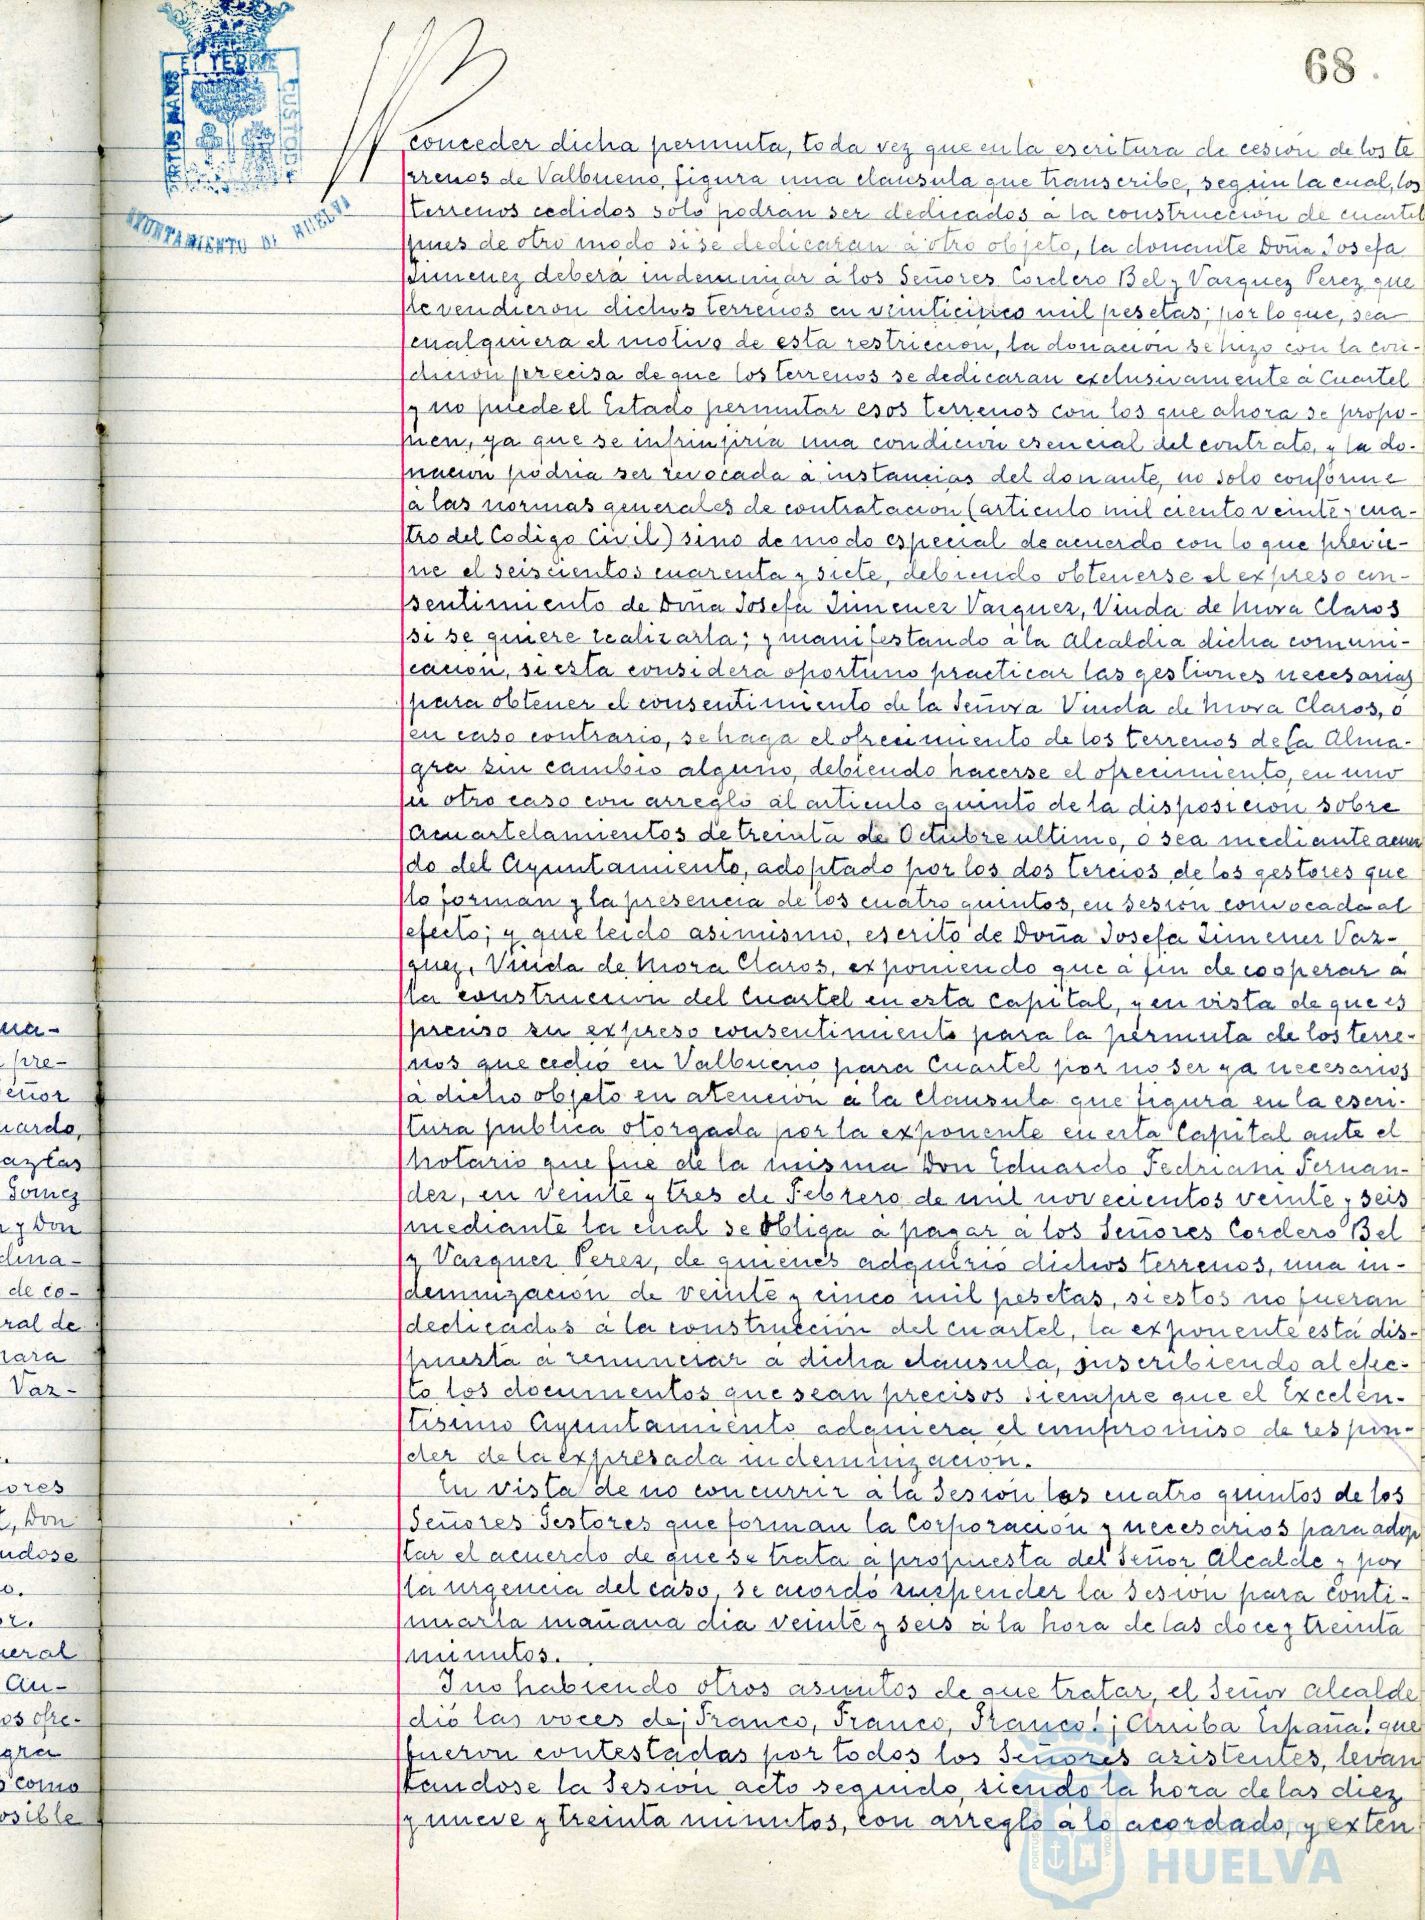 68.
PORTUS MARIS ET TERRE CUSTODIA
AYUNTAMIENTO DE HUELVA
conceder dicha permuta, toda vez que en la escritura de cesion de los te
rrenos de Valbueno, figura una clausula que transcribe, según la cual, los
terrenos cedidos sólo podran ser dedicados a la construccion de cuartel
pues de otro modo si se dedicaran a otro objeto, la donante Doña Josefa
Jimenez deberá indemnizar á los Señores Cordero Bel y Vazquez Perez que
le vendieron dichos terrenos en veinticinco mil pesetas; por lo que, sea
cualquiera el motivo de esta restriccion, la donacion se hizo con la con-
dicion precisa de que los terrenos se dedicaran exclusivamente á Cuartel
y no puede el Estado permutar esos terrenos con los que ahora se propo-
nen, ya que se infrinjiria una condicion esencial del contrato, y la do-
nacion podria ser revocada á instancias del donante, no solo conforme
á las normas generales de contratacion (articulo mil ciento veinte y cua-
tro del Codigo Civil) sino de modo especial de acuerdo con lo que previe-
ne el seiscientos cuarenta y siete, debiendo obtenerse el expreso con-
sentimiento de Doña Josefa Jimenez Vazquez, Viuda de Mora Claros
si se quiere realizarla; y manifestando á la Alcaldia dicha comuni-
cacion, si esta considera oportuno practicar las gestiones necesarias
para obtener el consentimiento de la Señora Viuda de Mora Claros, ó
en caso contrario, se haga el ofrecimiento de los terrenos de la Alma-
gra sin cambio alguno, debiendo hacerse el ofrecimiento, en uno
ú otro caso con arreglo al articulo quinto de la disposicion sobre
Acuartelamientos de treinta de Octubre ultimo, ó sea mediante acuer
do del Ayuntamiento, adoptado por los dos tercios de los gestores que
lo forman y la presencia de los cuatro quintos, en sesion convocada al
efecto; y que leido asimismo, escrito de Doña Josefa Jimenez Vaz-
quez, Viuda de Mora Claros, exponiendo que á fin de cooperar á
la construccion del Cuartel en esta Capital, y en vista de que es
preciso su expreso consentimiento para la permuta de los terre-
nos que cedió en Valbueno para Cuartel por no ser ya necesarios
á dicho objeto en atencion a la clausula que figura en la escri-
tura publica otorgada por la exponente en esta Capital ante el
Notario que fue de la misma Don Eduardo Fedriani Fernan-
dez, en veinte y tres de Febrero de mil novecientos veinte y seis
mediante la cual se obliga á pagar á los Señores Cordero Bel
y Vazquez Perez, de quienes adquirió dichos terrenos, una in-
demnizacion de veinte y cinco mil pesetas, si estos no fueran
dedicados á la construccion del cuartel, la exponente está dis-
puesta á renunciar á dicha clausula, suscribiendo al efec-
to los documentos que sean precisos siempre que el Excelen-
tisimo Ayuntamiento adquiera el compromiso de respon-
der de la expresada indemnizacion.
En vista de no concurrir á la Sesion los cuatro quintos de los
Señores Gestores que forman la Corporacion y necesarios para adop
tar el acuerdo de que se trata á propuesta del Señor Alcalde y por
la urgencia del caso, se acordó suspender la Sesion para conti-
nuarla mañana dia veinte y seis á la hora de las doce y treinta
minutos.
Y no habiendo otros asuntos de que tratar, el Señor Alcalde
dió las voces de ¡Franco, Franco, Franco! ¡Arriba España! que
fueron contestadas por todos los Señores asistentes, levan
tandose la Sesion acto seguido, siendo la hora de las diez
y nueve y treinta minutos, con arreglo á lo acordado, y exten
ua-
pre-
eñor
uardo,
azlas
Gomez
y Don
dina-
de co-
ral de
Vaz-
ores
, Don
udose
o.
or.
neral
au-
os ofre-
gra
como
osible
HUELVA